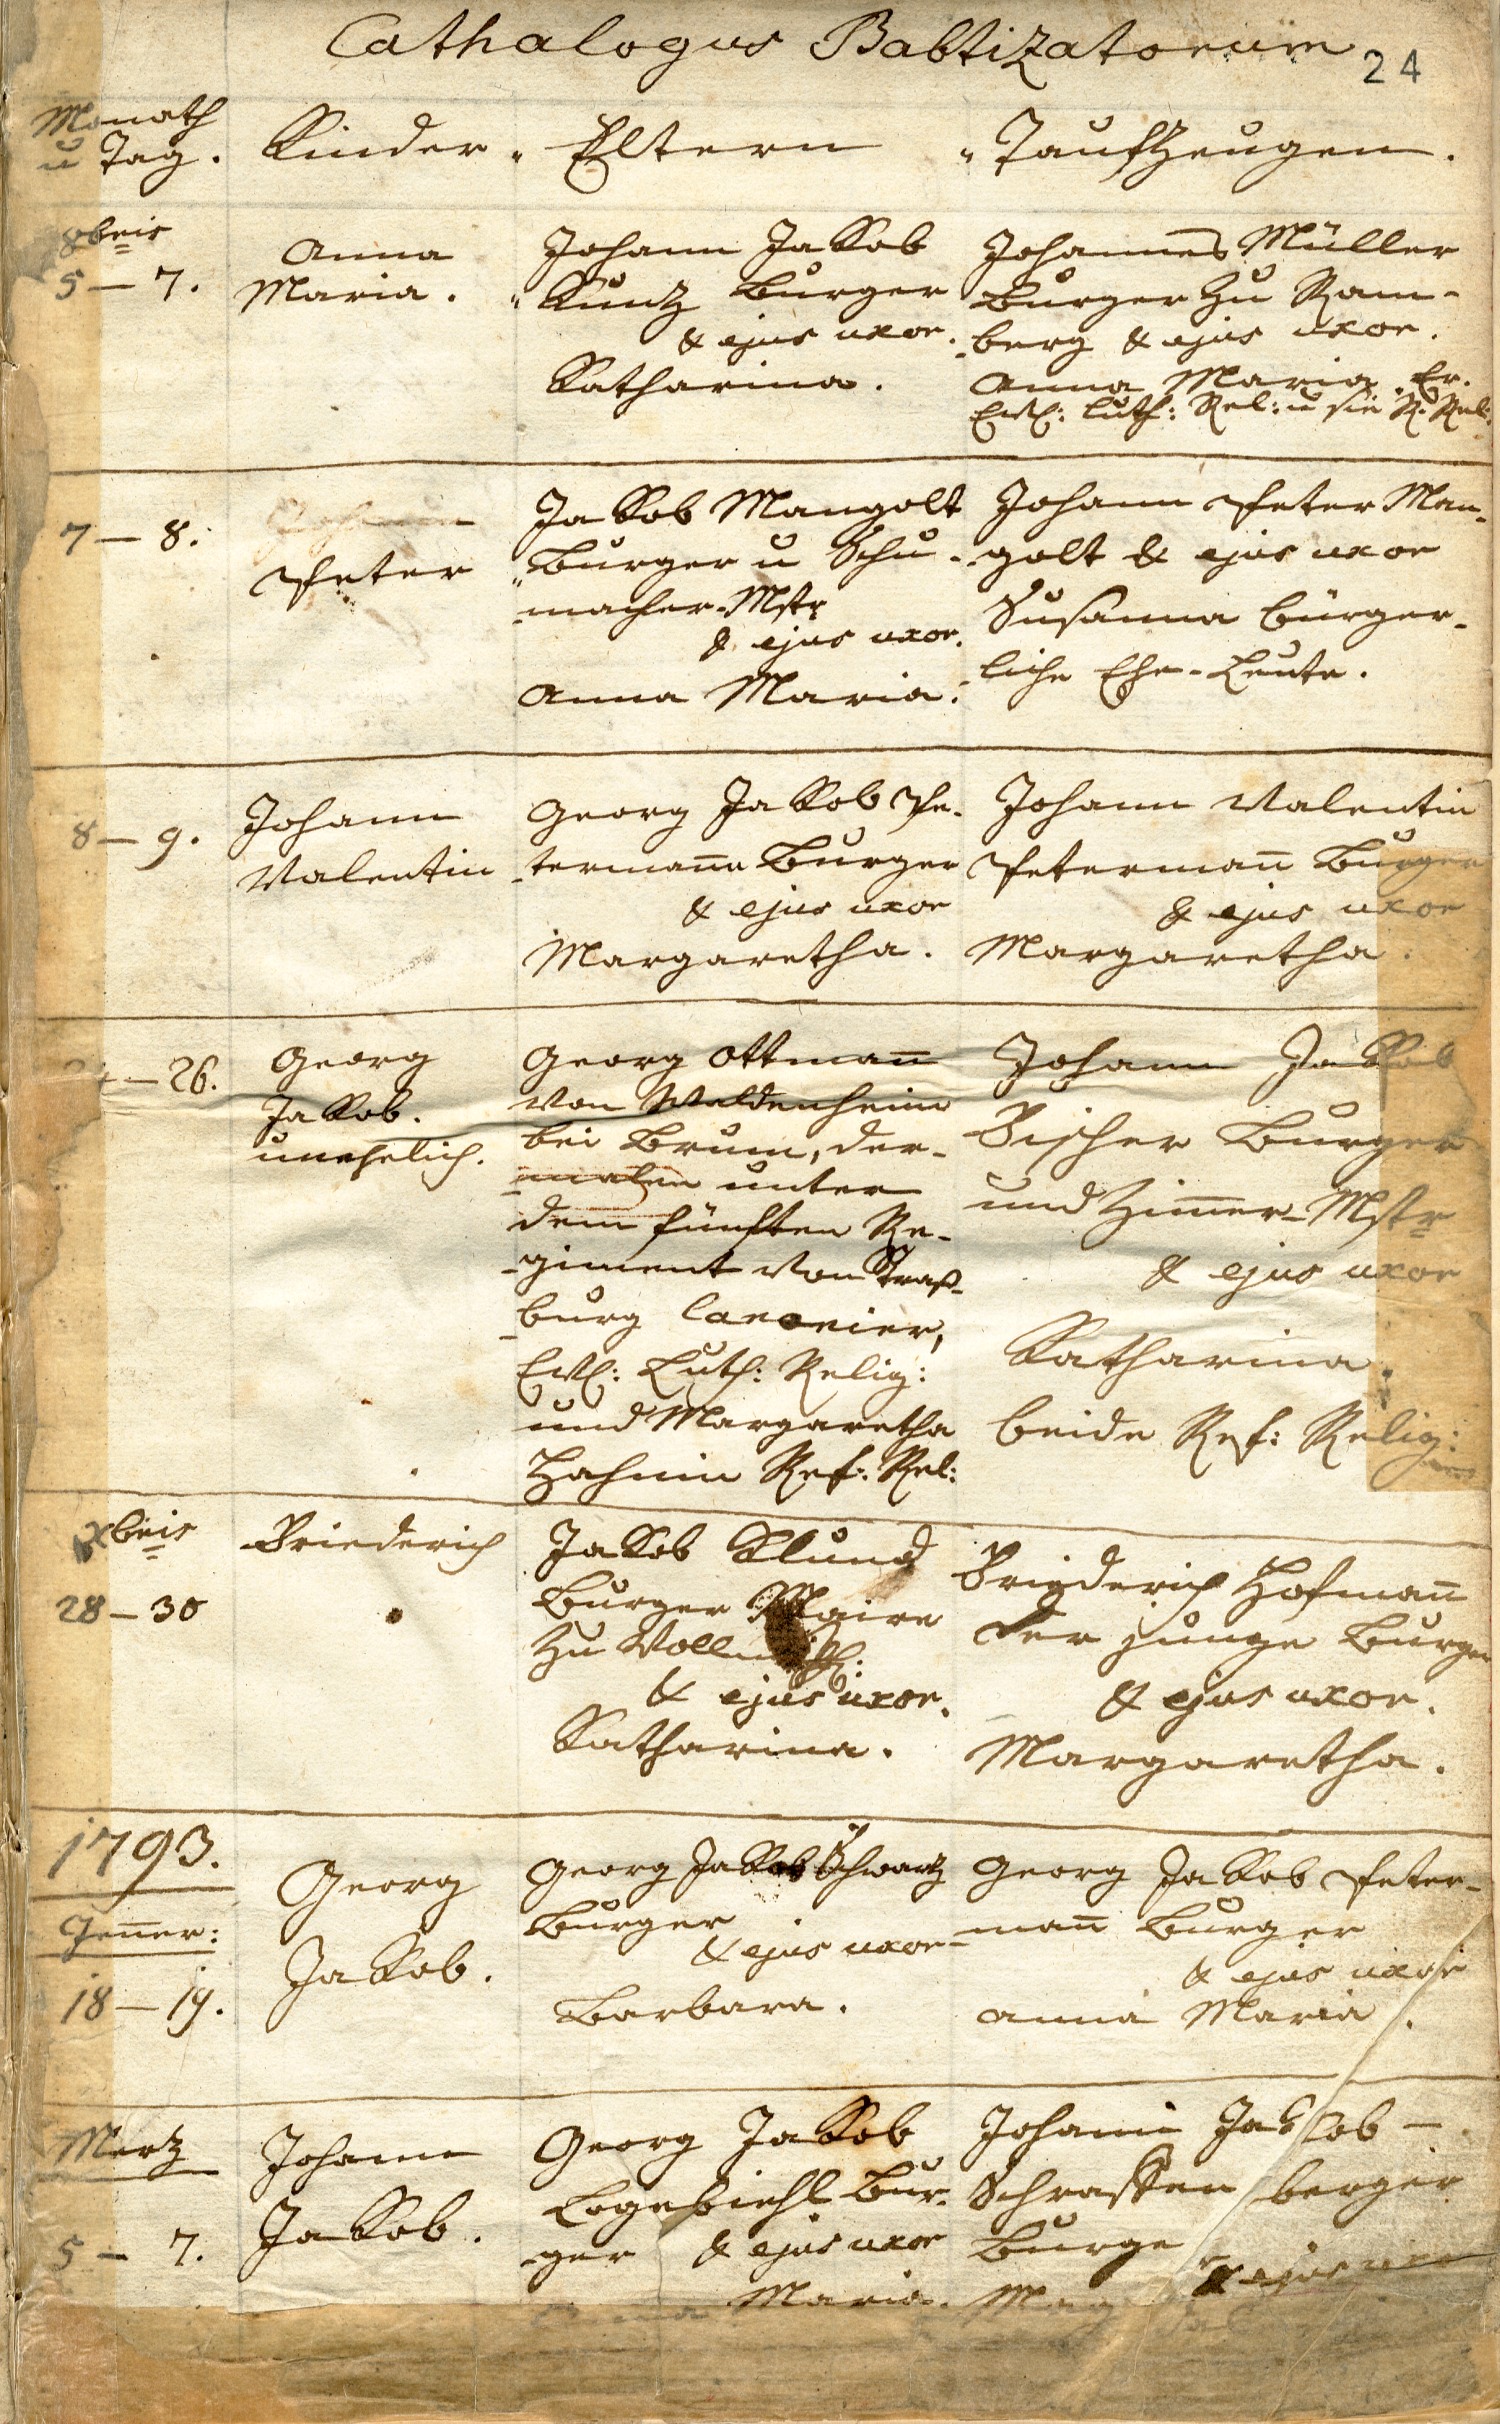 Cathalogus Babtizatorum
24
Monath
u Tag.
Kinder
Eltern
Taufzeugen.
8beis
5 – 7.
Anna
Maria.
Johann Jakob
Kuntz Burger
& ejus uxor.
Katharina.
Johannes Müller
Burger zu Ram-
berg & ejus uxor.
Anna Maria. Er.
Evl: Luth: Rel: u sie R. Rel:
7 – 8.
Peter
Jakob Mangolt
Burger u Schu-
macher-Mstr
& ejus uxor.
Anna Maria.
Johann Peter Man-
golt & ejus uxor
Susanna bürger-
liche Ehe-Leute.
8 – 9.
Johann
Valentin
Georg Jakob Pe-
termann Burger
& ejus uxor
Margaretha.
Johann Valentin
Petermañ Burger
& ejus uxor
Margaretha.
– 26.
Georg
Jakob.
unehelich.
Georg Ottmañ
von Waldenheim
bei Brum, der-
malen unter
dem fünften Re-
giment von Straß-
burg Canonier,
Evl: Luth: Relig:
und Margaretha
Hahnin Ref: Rel:
Johann Jakob
Fischer Burger
und Zim̄er-Mstr
& ejus uxor
Katharina.
beide Ref: Relig:
Xbeis
28 – 30
Friederich
Jakob Klund
Burger Maire
zu
& ejus uxor.
Katharina.
Friederich Hofmañ
der junge Burger
& ejus uxor.
Margaretha.
1793.
Jeñer:
18 – 19.
Georg
Jakob.
Georg Jakob Schwartz
Burger
& ejus uxor
Barbara.
Georg Jakob Peter-
mañ Burger
& ejus uxor
Anna Maria.
Mertz
5 – 7.
Johann
Jakob.
Georg Jakob
Bur-
ger & ejus uxor
Maria.
Johann Jakob
berger
Burger
& ejus uxor